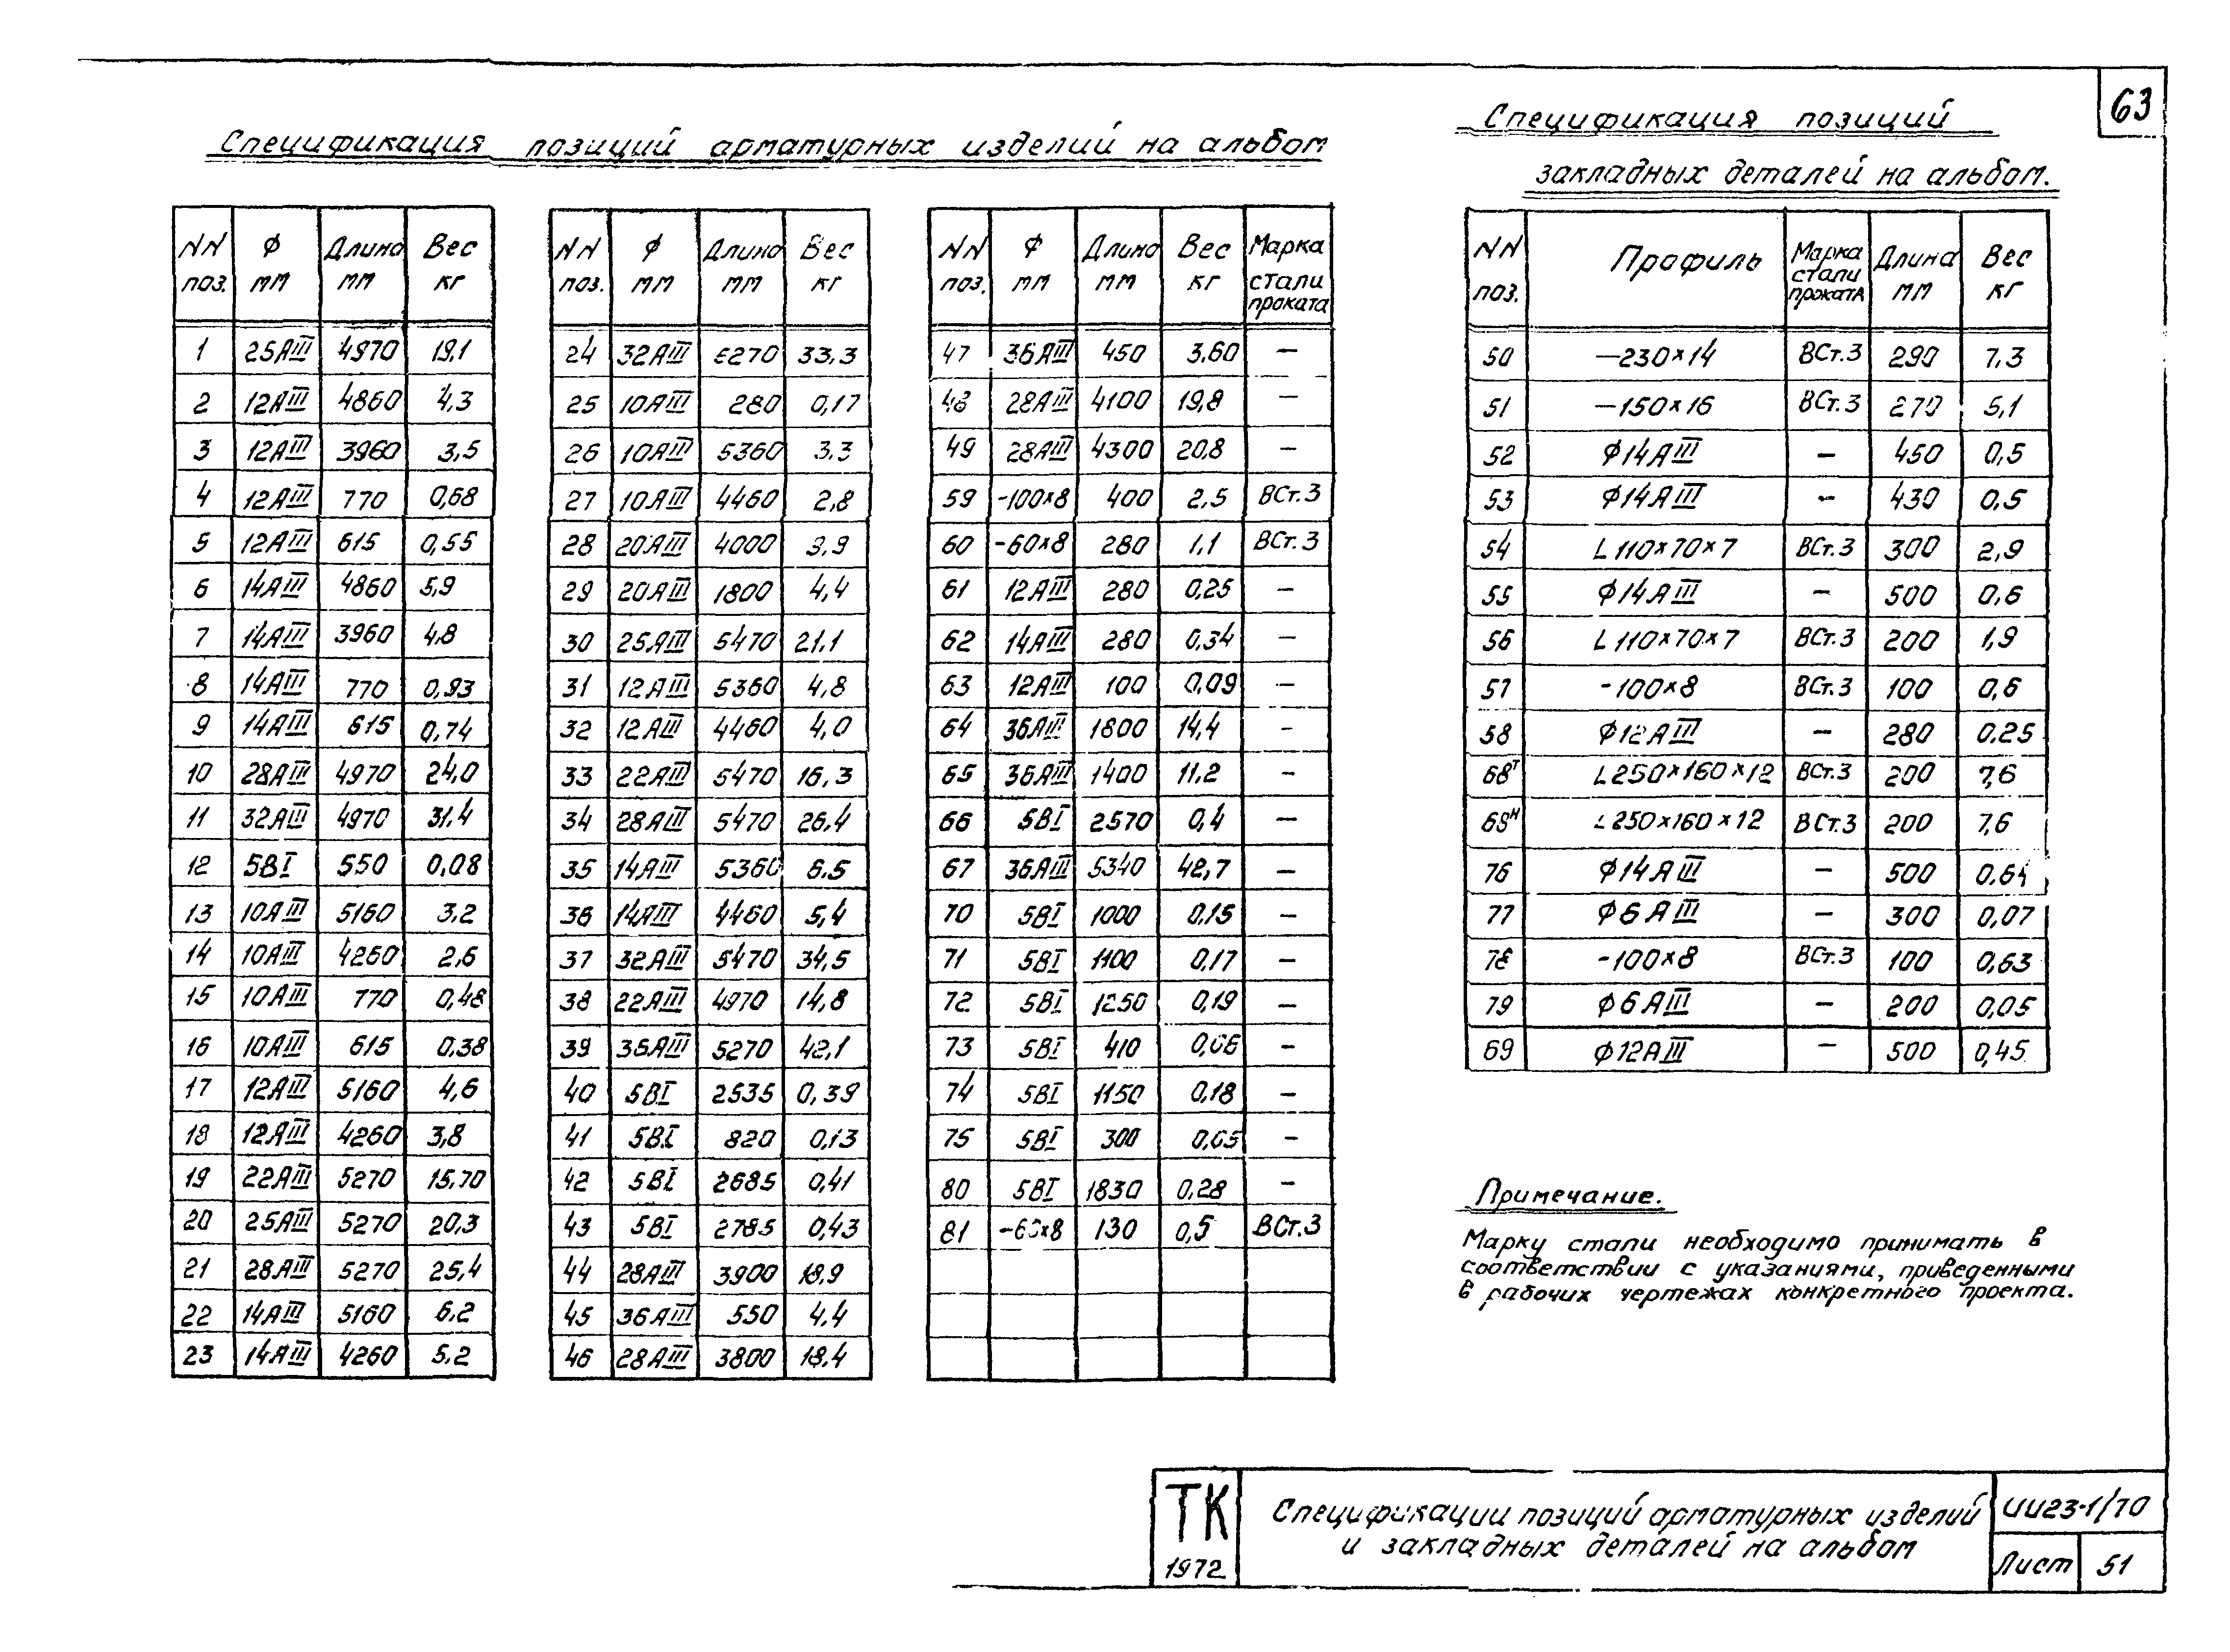 63
Спецификация позиций арматурных изделий на альбом
NN поз. Ф мм Длина мм Вес кг
1 25АIII 4970 19,1
2 12АIII 4860 4,3
3 12АIII 3960 3,5
4 12АIII 770 0,68
5 12АIII 615 0,55
6 14АIII 4860 5,9
7 14АIII 3960 4,8
8 14АIII 770 0,93
9 14АIII 615 0,74
10 28АIII 4970 24,0
11 32АIII 4970 31,4
12 5ВI 550 0,08
13 10АIII 5160 3,2
14 10АIII 4260 2,6
15 10АIII 770 0,48
16 10АIII 615 0,38
17 12АIII 5160 4,6
18 12АIII 4260 3,8
19 22АIII 5270 15,70
20 25АIII 5270 20,3
21 28АIII 5270 25,4
22 14АIII 5160 6,2
23 14АIII 4260 5,2
NN поз. Ф мм Длина мм Вес кг
24 32АIII 5270 33,3
25 10АIII 280 0,17
26 10АIII 5360 3,3
27 10АIII 4460 2,8
28 20АIII 4000 9,9
29 20АIII 1800 4,4
30 25АIII 5470 21,1
31 12АIII 5360 4,8
32 12АIII 4460 4,0
33 22АIII 5470 16,3
34 28АIII 5470 26,4
35 14АIII 5360 6,5
36 14АIII 4460 5,4
37 32АIII 5470 34,5
38 22АIII 4970 14,8
39 36АIII 5270 42,1
40 5ВI 2535 0,39
41 5ВI 820 0,13
42 5ВI 2685 0,41
43 5ВI 2785 0,43
44 28АIII 3900 18,9
45 36АIII 550 4,4
46 28АIII 3800 18,4
NN поз. Ф мм Длина мм Вес кг Марка стали проката
47 36АIII 450 3,60 —
48 28АIII 4100 19,8 —
49 28АIII 4300 20,8 —
59 -100×8 400 2,5 ВСт.3
60 -60×8 280 1,1 ВСт.3
61 12АIII 280 0,25 —
62 14АIII 280 0,34 —
63 12АIII 100 0,09 —
64 36АIII 1800 14,4 —
65 36АIII 1400 11,2 —
66 5ВI 2570 0,4 —
67 36АIII 5340 42,7 —
70 5ВI 1000 0,15 —
71 5ВI 1100 0,17 —
72 5ВI 1250 0,19 —
73 5ВI 410 0,06 —
74 5ВI 1150 0,18 —
75 5ВI 300 0,05 —
80 5ВI 1830 0,28 —
81 -60×8 130 0,5 ВСт.3
Спецификация позиций
закладных деталей на альбом.
NN поз. Профиль Марка стали проката Длина мм Вес кг
50 —230×14 ВСт.3 290 7,3
51 —150×16 ВСт.3 270 5,1
52 Ф14АIII — 450 0,5
53 Ф14АIII — 430 0,5
54 L110×70×7 ВСт.3 300 2,9
55 Ф14АIII — 500 0,6
56 L110×70×7 ВСт.3 200 1,9
57 -100×8 ВСт.3 100 0,6
58 Ф12АIII — 280 0,25
68т L250×160×12 ВСт.3 200 7,6
68н L250×160×12 ВСт.3 200 7,6
76 Ф14АIII — 500 0,64
77 Ф6АIII — 300 0,07
78 -100×8 ВСт.3 100 0,63
79 Ф6АIII — 200 0,05
69 Ф12АIII — 500 0,45
Примечание.
Марку стали необходимо принимать в
соответствии с указаниями, приведенными
в рабочих чертежах конкретного проекта.
ТК
1972
Спецификации позиций арматурных изделий
и закладных деталей на альбом
ИИ23-1/70
Лист 51